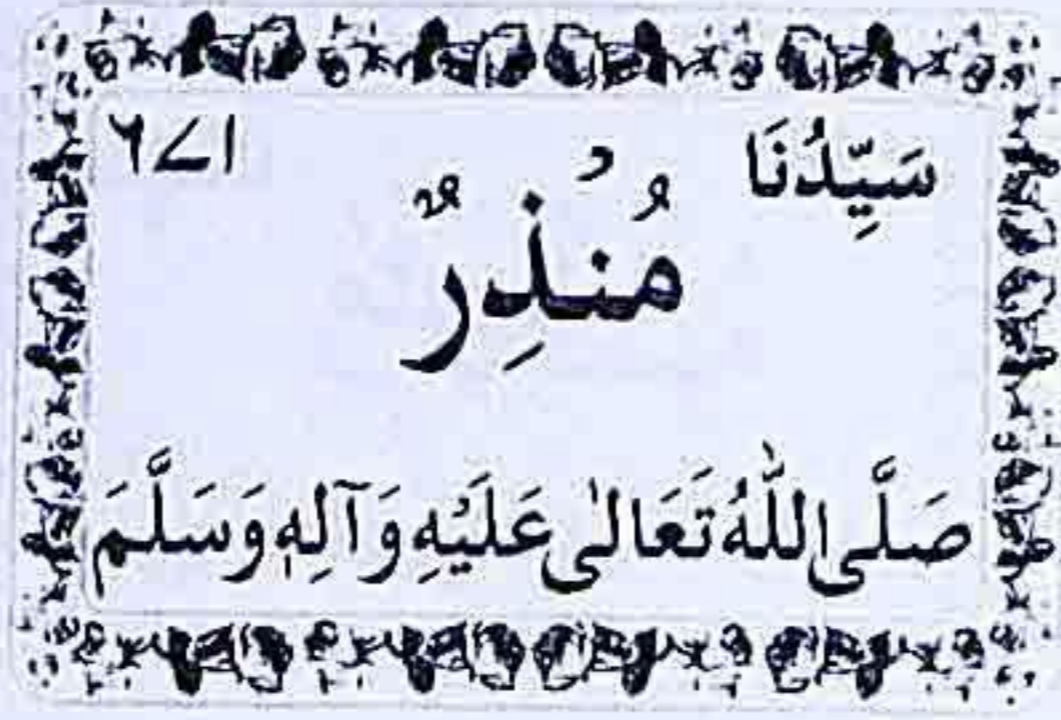 سَيِّدُنَا ۶۷۱
مُنْذِرٌ
صَلَّى اللّٰهُ تَعَالٰى عَلَيْهِ وَآلِهٖ وَسَلَّمَ